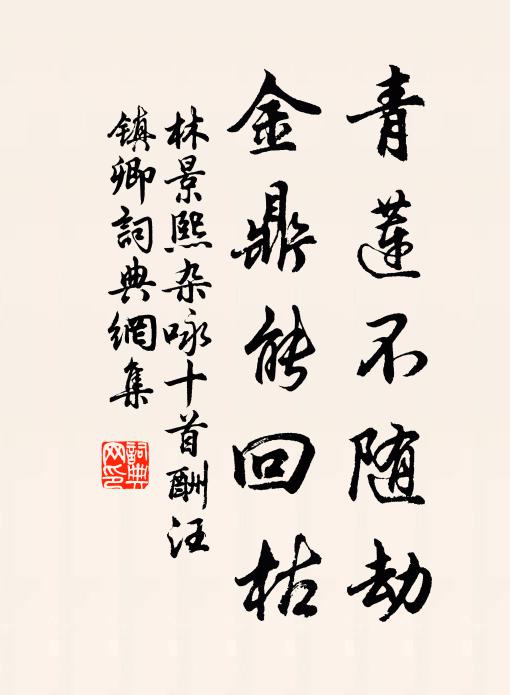 青蓮不随劫
金鼎能回枯
林景熙杂咏十首酬汪
镇卿詞典網集
詞典
网印